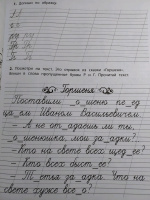 1. Допиши по образцу.
2. Посмотри на текст. Это отрывок из сказки «Горшеня».
Впиши в слова пропущенные буквы Р и Г. Прочитай текст.
Горшеня.
Поставили _о_шеню пе_ед
ца_ём Иваном Васильевичем.
– А не от_адаешь ли ты,
_о_шенюшка, мои за_адки?
– Кто на свете всех щед_ее?
– Кто всех быст_ее?
– Т_етья за_адка. Что на
свете хуже все_о?